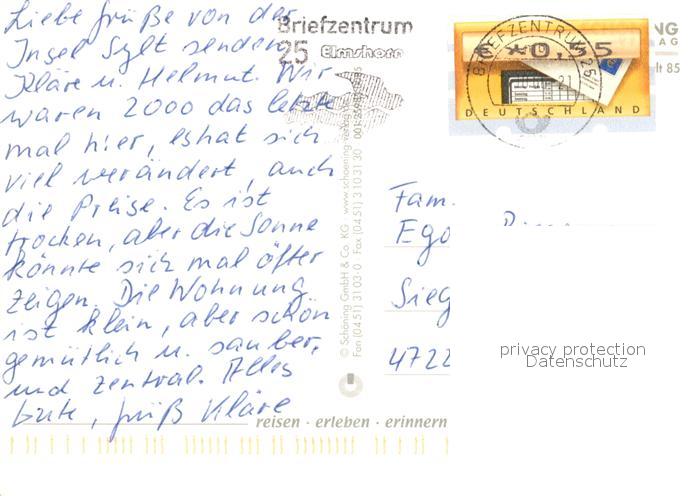 Liebe Grüße von der
Insel Sylt senden
Kläre u. Helmut. Wir
waren 2000 das letzte
mal hier, es hat sich
viel verändert, auch
die Preise. Es ist
trocken, aber die Sonne
könnte sich mal öfter
zeigen. Die Wohnung
ist klein, aber schön
gemütlich u. sauber,
und zentral. Alles
Gute, grüß Kläre
Briefzentrum
25 Elmshorn
BRIEFZENTRUM 25
DEUTSCHLAND
NG
AG
lt 85
© Schöning GmbH & Co. KG www.schoening-verlag
Fon (0451) 31 03-0 Fax (0451) 310 31 30
Fam.
Ego
Sieg
4722
privacy protection
Datenschutz
reisen · erleben · erinnern